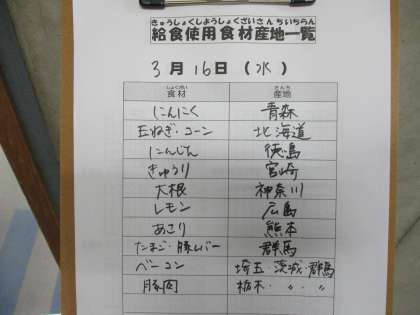 きゅうしょくしようしょくざいさんちいちらん
給食使用食材産地一覧
3月16日(水)
しょくざい さんち
食材 産地
にんにく 青森
玉ねぎ・コーン 北海道
にんじん 徳島
きゅうり 宮崎
大根 神奈川
レモン 広島
あさり 熊本
たまご・豚レバー 群馬
ベーコン 埼玉・茨城・群馬
豚肉 栃木・〃・〃